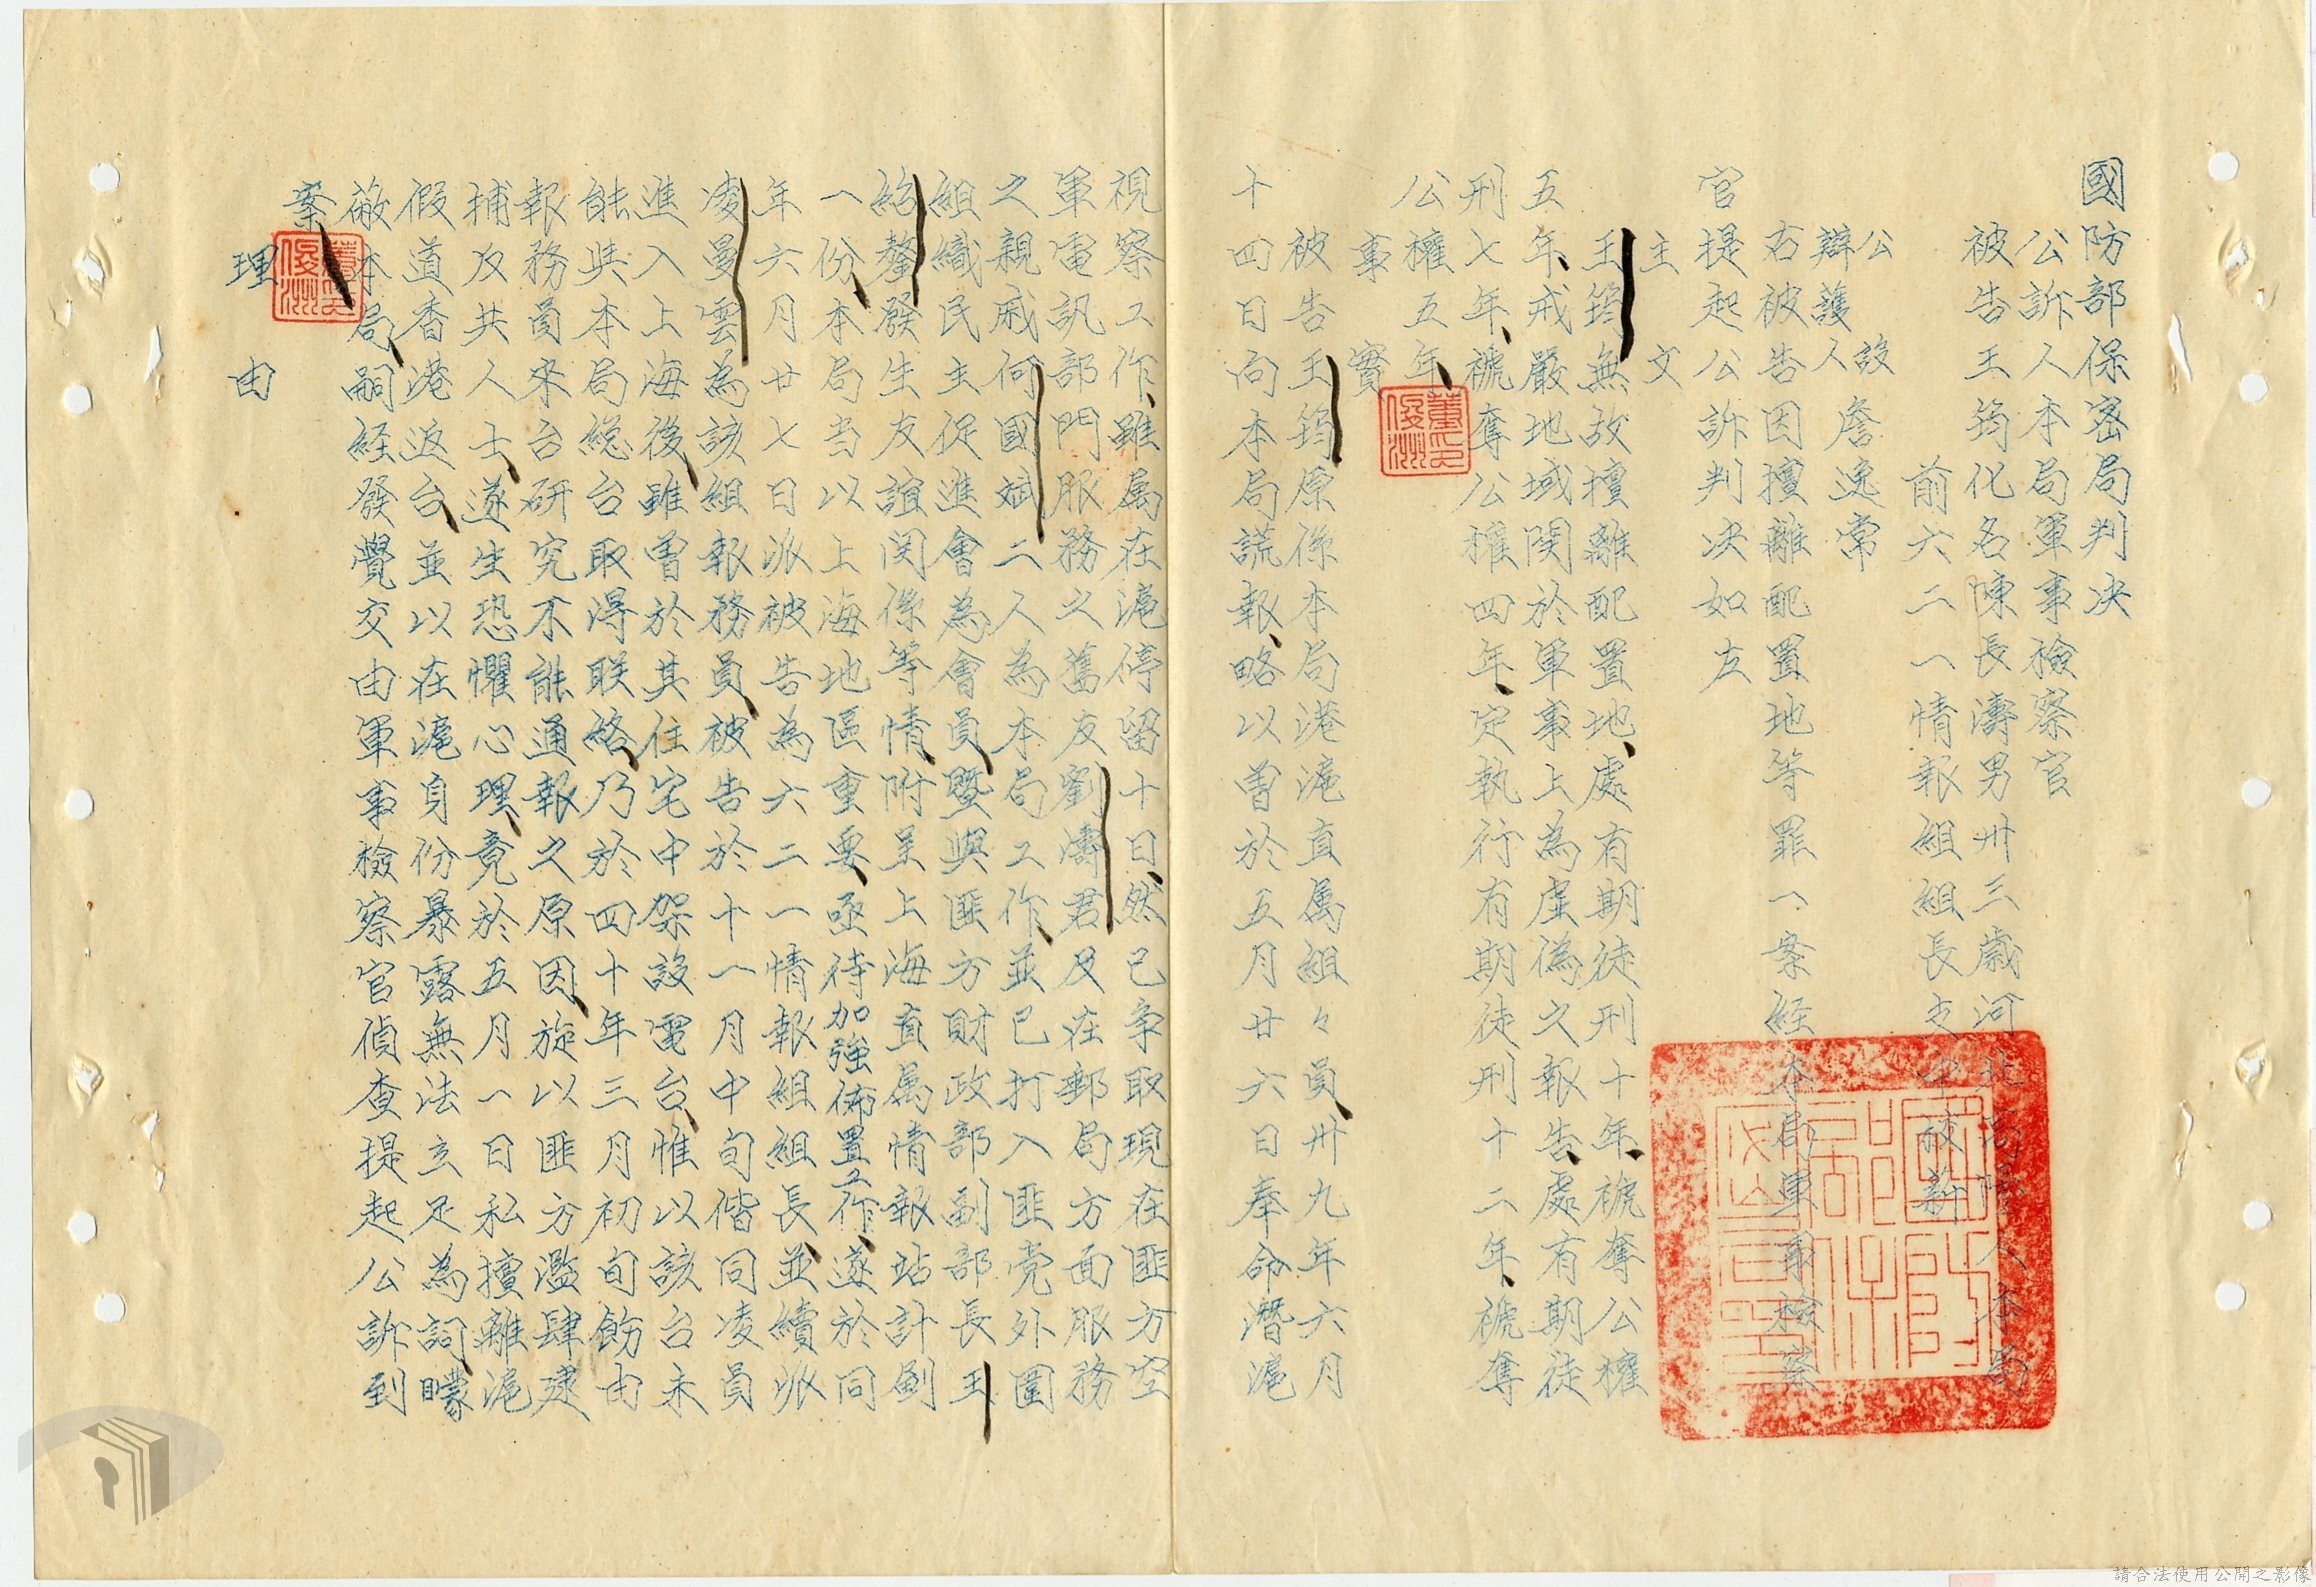 國防部保密局判決
公訴人本局軍事檢察官
被告王筠化名陳長濤男卅三歲河北 人本局
前六二一情報組組長
公設
辯護人 詹逸常
右被告因擅離配置地等罪一案經本局軍事檢察
官提起公訴判決如左
主文
王筠無故擅離配置地、處有期徒刑十年、褫奪公權
五年、戒嚴地域関於軍事上為虛偽之報告、處有期徒
刑七年、褫奪公權四年、定執行有期徒刑十二年、褫奪
公權五年、
事實
被告王筠原係本局港滬直属組々員、卅九年六月
十四日向本局謊報、略以曾於五月廿六日奉命潛滬
視察工作、雖属在滬停留十日、然已争取現在匪方空
軍電訊部門服務之舊友劉濤君及在郵局方面服務
之親戚何國斌二人為本局工作、並已打入匪党外圍
組織民主促進會為會員、暨與匪方財政部副部長王
紹鏊發生友誼関係等情、附呈上海直属情報站計劃
一份、本局当以上海地區重要、亟待加強佈置工作、遂於同
年六月廿七日派被告為六二一情報組組長、並續派
凌曼雲為該組報務員、被告於十一月中旬偕同凌員
進入上海後、雖曾於其住宅中架設電台、惟以該台未
能與本局総台取得联絡、乃於四十年三月初旬飭由
報務員來台研究不能通報之原因、旋以匪方濫肆逮
捕反共人士、遂生恐懼心理、竟於五月一日私擅離滬
假道香港返台、並以在滬身份暴露無法立足為詞、矇
蔽本局、嗣経發覺交由軍事檢察官偵查提起公訴到
案
理由
董俊洲
董俊洲
請合法使用公開之影像